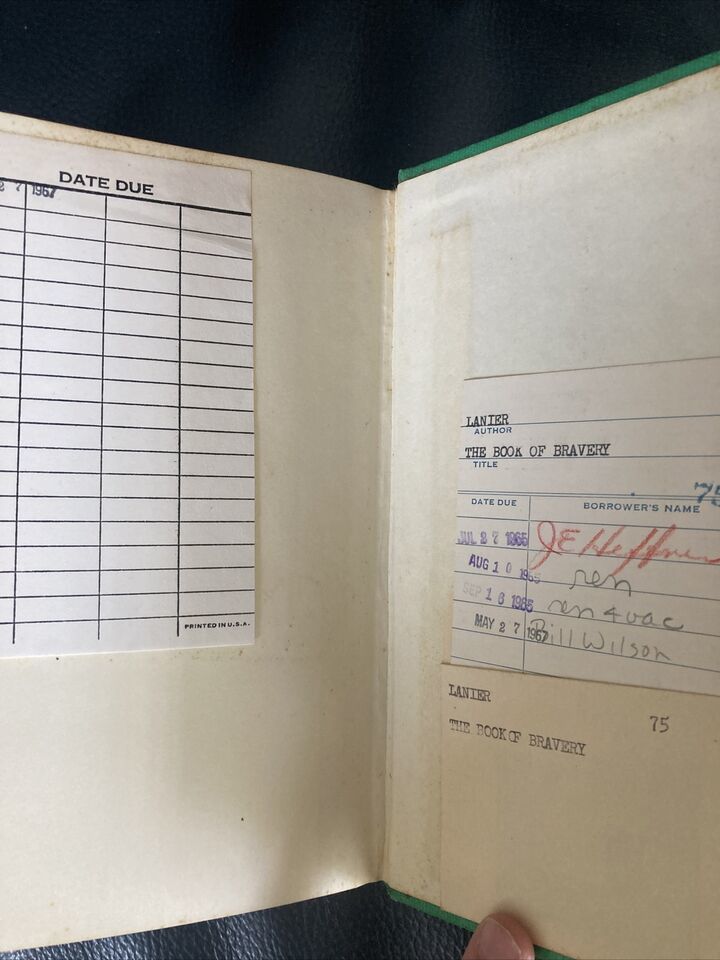 DATE DUE
2 7 1967
PRINTED IN U.S.A.
LANIER
AUTHOR
THE BOOK OF BRAVERY
TITLE
75
DATE DUE BORROWER'S NAME
JUL 27 1965 J E Heffner
AUG 10 1965 ren
SEP 16 1965 ren 4 vac
MAY 27 1967 Bill Wilson
LANIER
75
THE BOOK OF BRAVERY